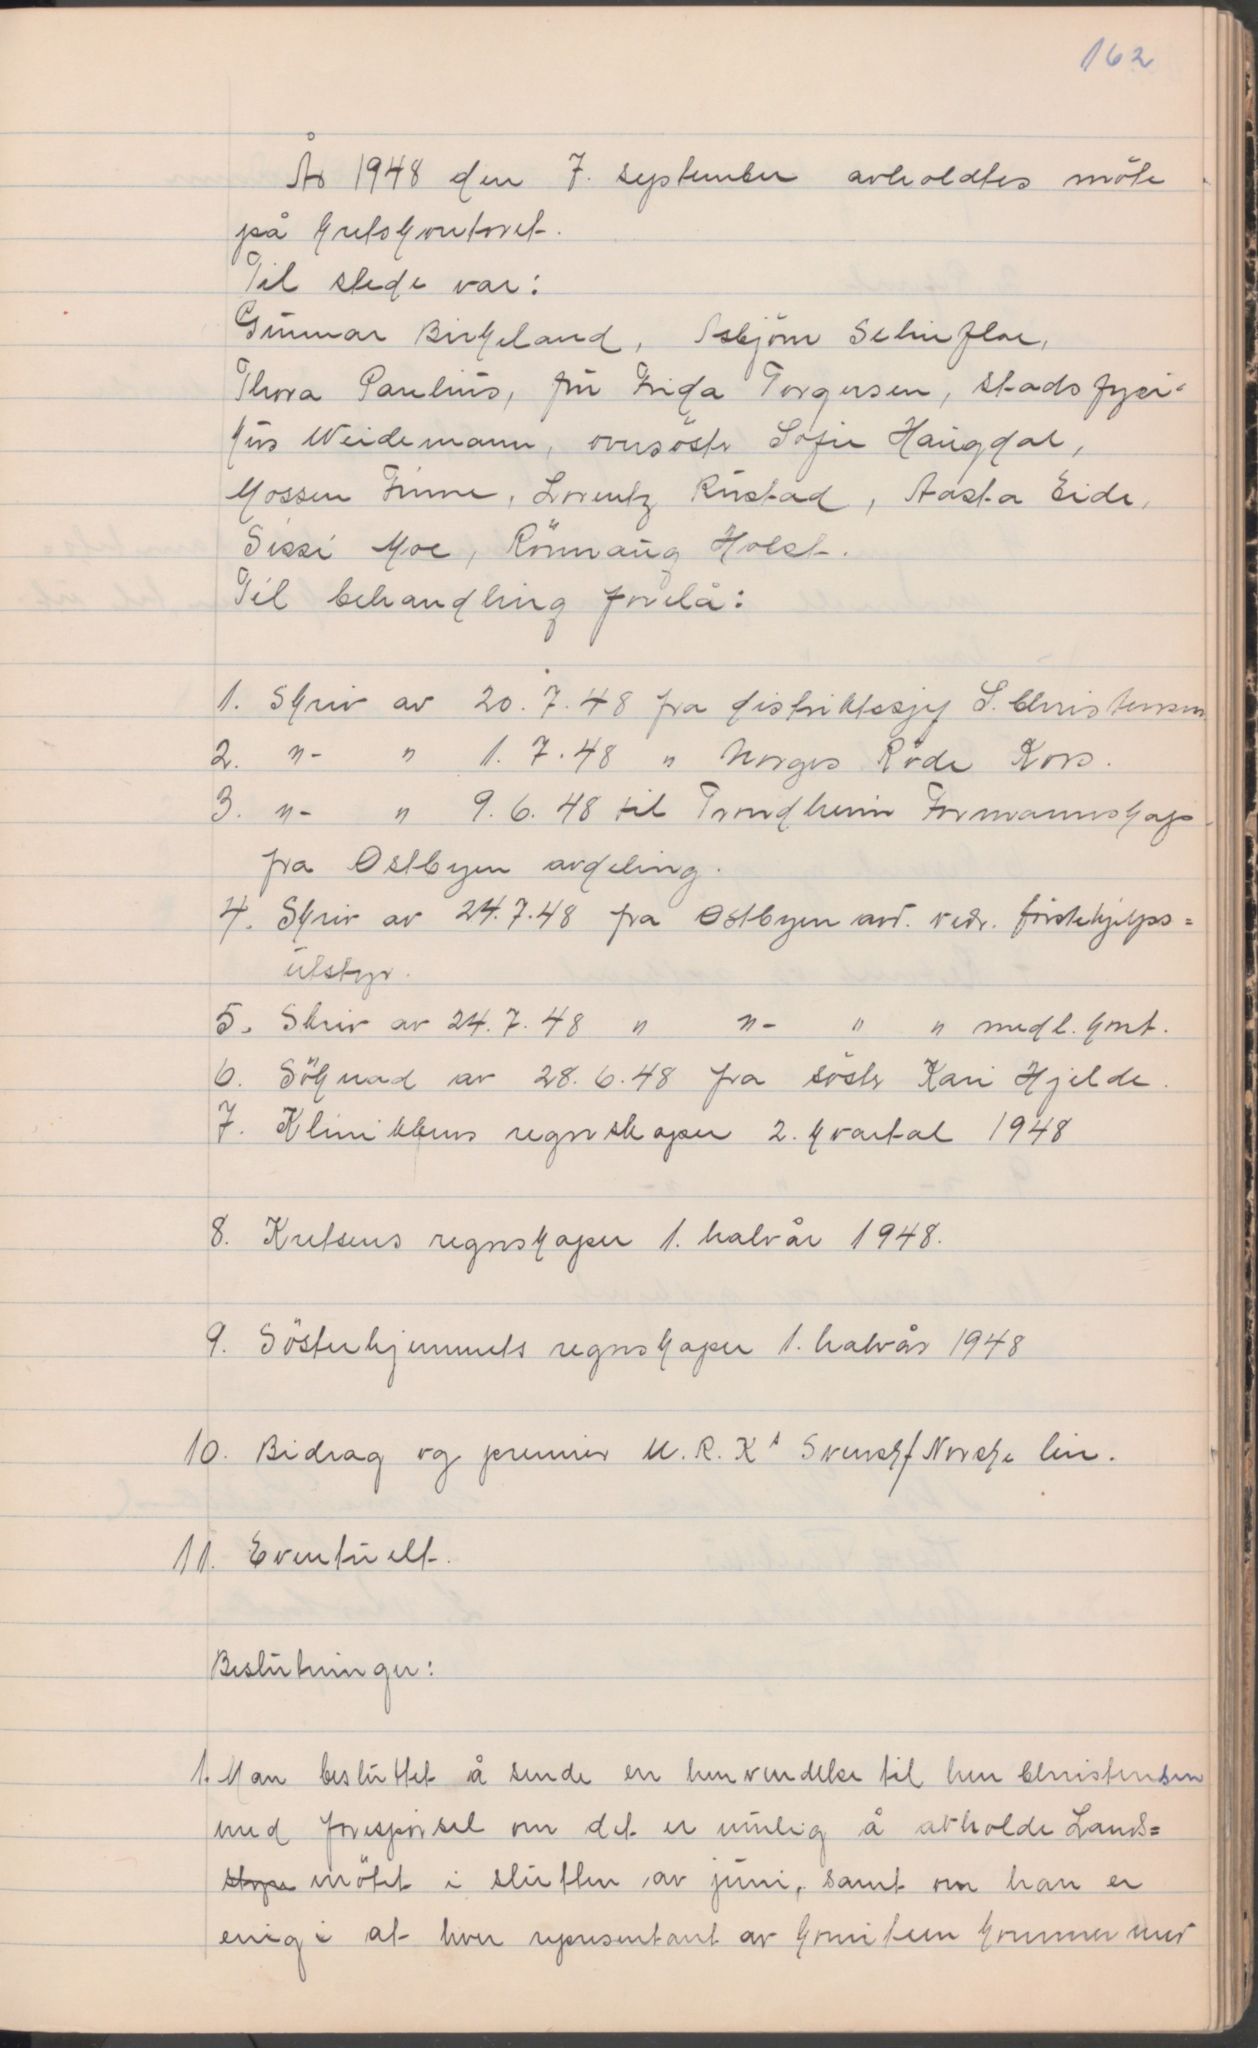 162
År 1948 den 7. september avholdtes möte
på kretskontoret.
Til stede var:
Gunnar Birkeland, Asbjörn Schinfloe,
Thora Paulius, fru Frida Torgersen, stadsfysi-
kus Weidemann, oversöster Sofie Haugdal,
Mossen Finne, Lorentz Rustad, Aasta Eide,
Sissi Moe, Rönnaug Holst.
Til behandling forelå:
1. Skriv av 20.7.48 fra distriktssjef S. Christensen
2. "- " 1.7.48 " Norges Röde Kors.
3. "- " 9.6.48 til Trondheim Formannskap
fra Østbyen avdeling.
4. Skriv av 24.7.48 fra Østbyen avd. vedr. förstehjelps=
utstyr.
5. Skriv av 24.7.48 " "- " " medl. kont.
6. Söknad av 28.6.48 fra söster Kari Hjelde.
7. Klinikkens regnskaper 2. kvartal 1948
8. Kretsens regnskaper 1. halvår 1948.
9. Sösterhjemmets regnskaper 1. halvår 1948
10. Bidrag og premier U.R.K.s Svensk/Norske lin.
11. Eventuelt.
Beslutninger:
1. Man besluttet å sende en henvendelse til herr Christensen
med forespörsel om det er mulig å avholde Lands=
styre mötet i slutten av juni, samt om han er
enig i at hver representant av komiteen kommer med